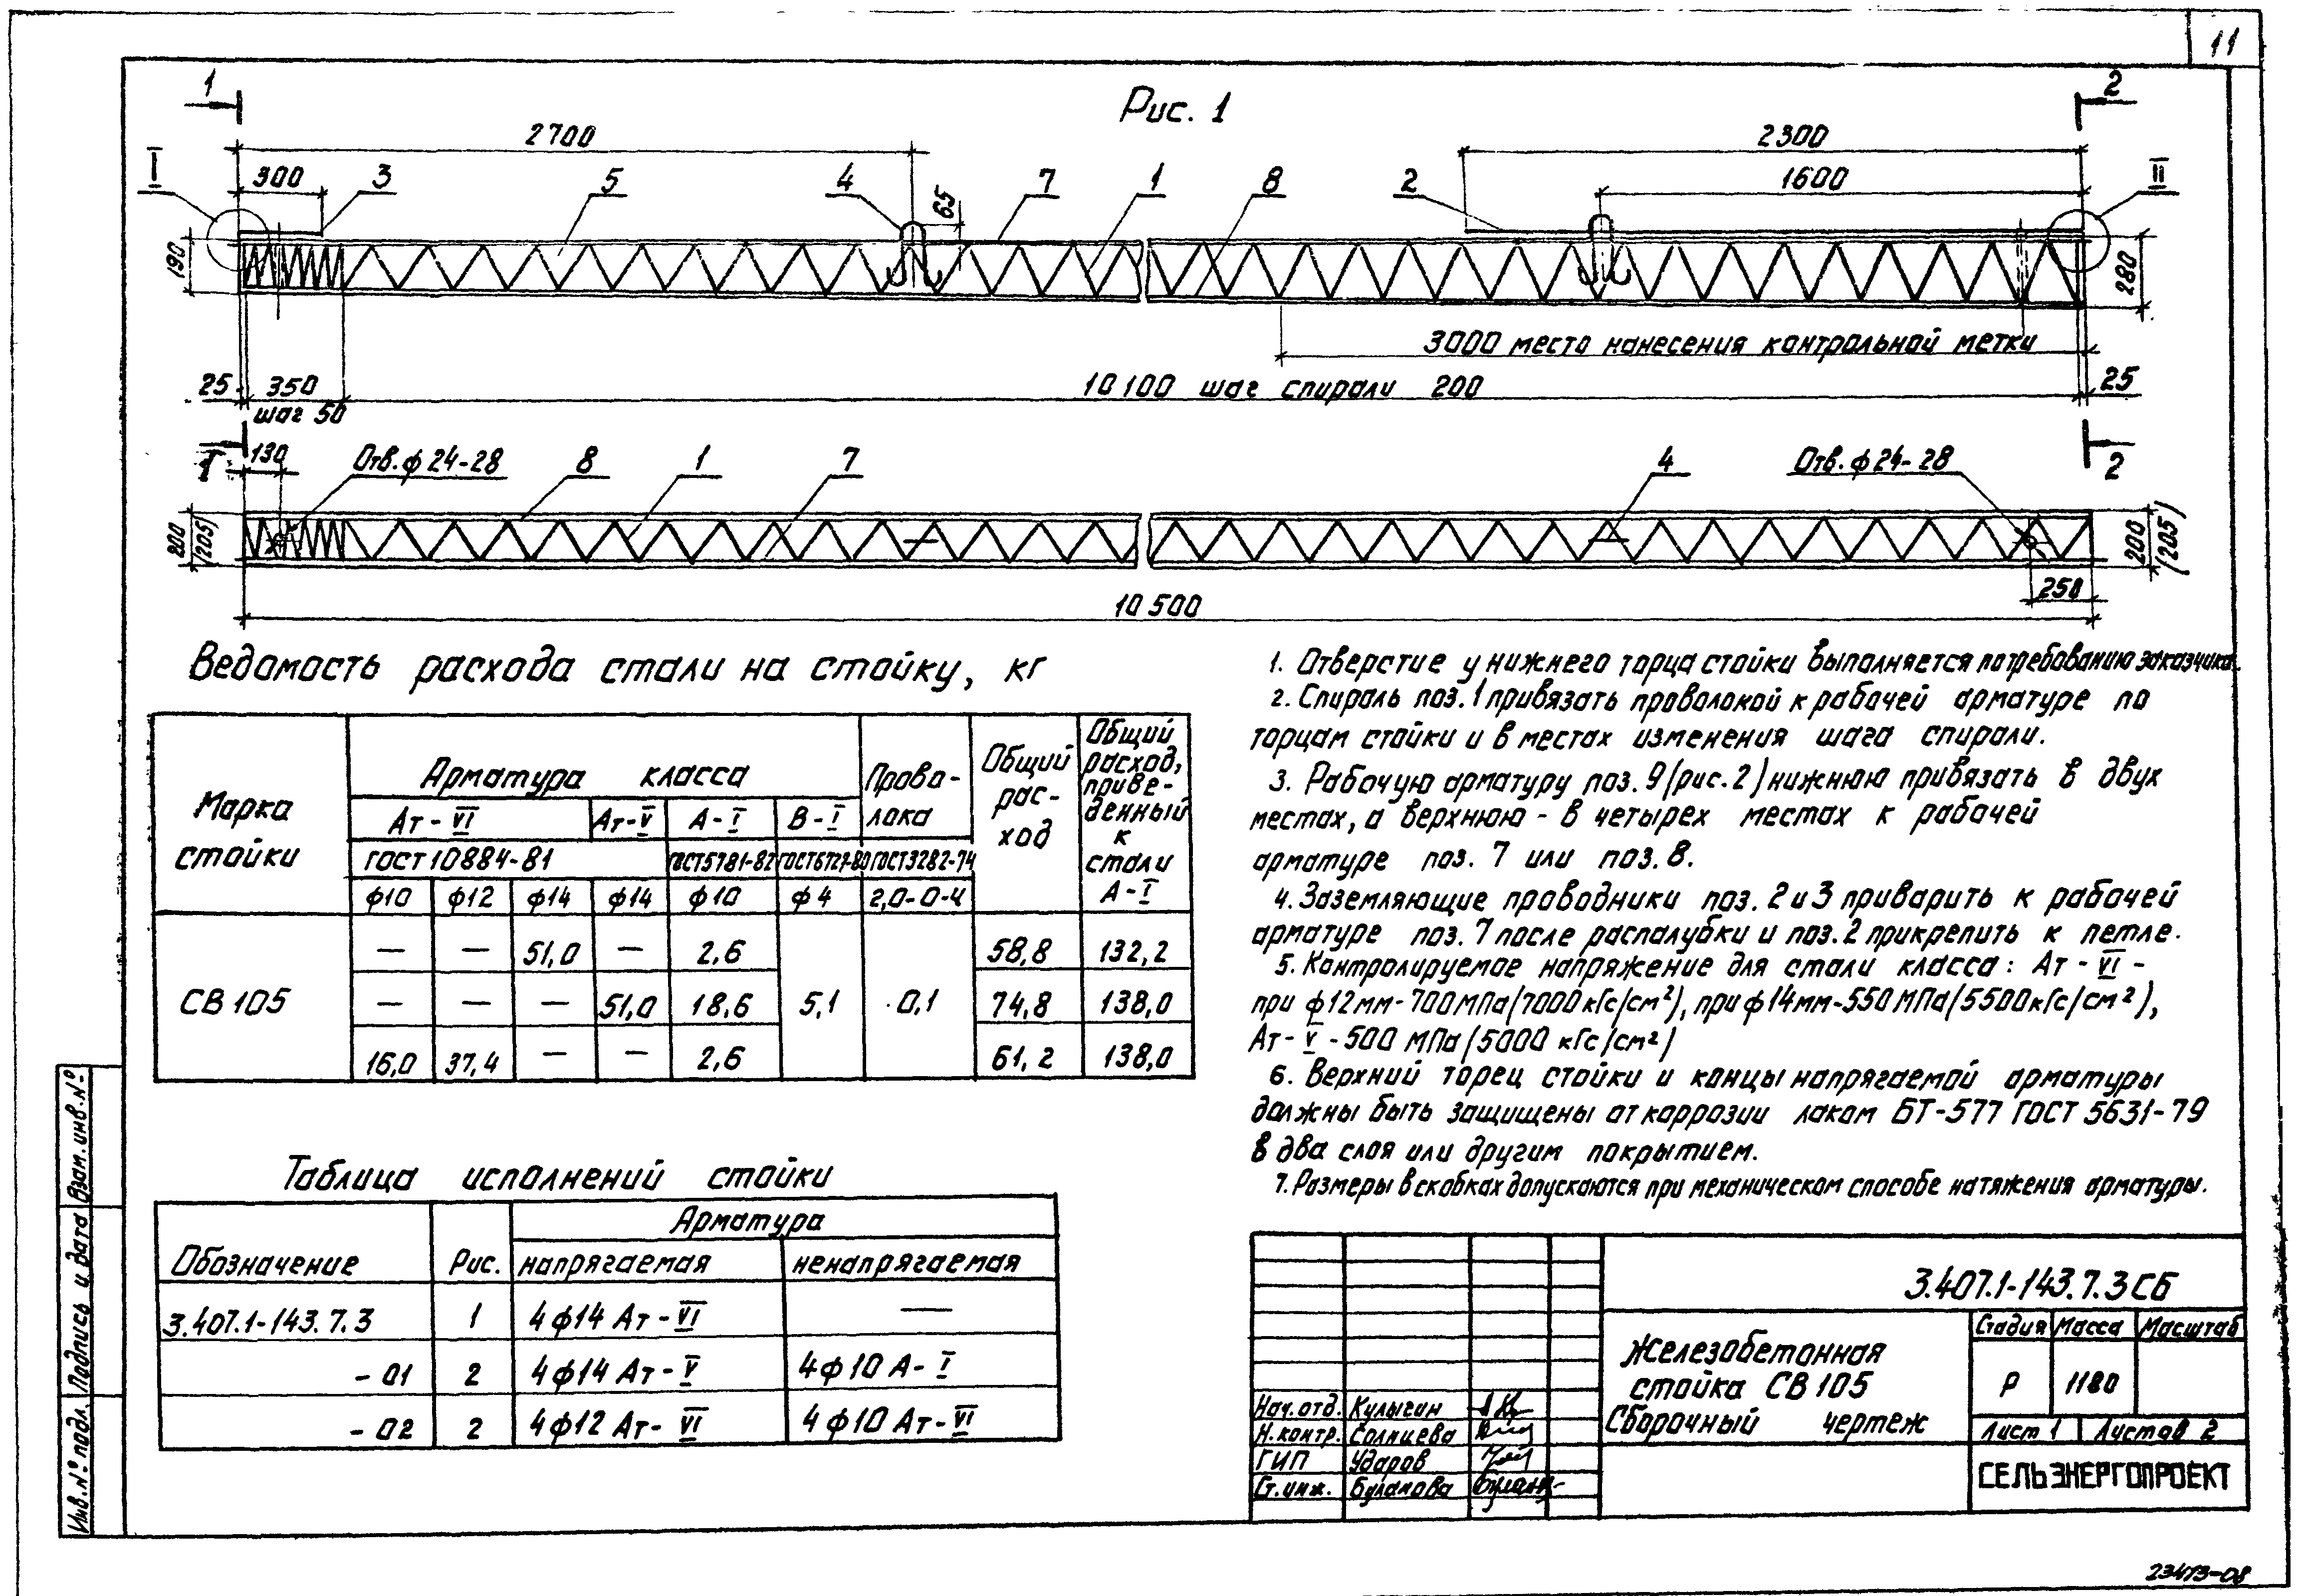 11
Рис. 1
1
2
2700
2300
I
300
3
5
4
65
7
1
8
2
1600
II
190
280
3000 место нанесения контрольной метки
25
350
10 100 шаг спирали 200
25
шаг 50
1
130
Отв. ф 24-28
8
1
7
4
Отв. ф 24-28
2
200
(205)
200
(205)
250
10 500
Ведомость расхода стали на стойку, кг
Марка стойки
Арматура класса
Прово-
лока
Общий
рас-
ход
Общий
расход,
приве-
денный
к
стали
А-I
Ат-VI
Ат-V
А-I
В-I
ГОСТ 10884-81
ГОСТ 5781-82
ГОСТ 6727-80
ГОСТ 3282-74
ф10 ф12 ф14 ф14 ф10 ф4 2,0-0-4
СВ 105
— — 51,0 — 2,6 58,8 132,2
— — — 51,0 18,6 5,1 0,1 74,8 138,0
16,0 37,4 — — 2,6 61,2 138,0
Таблица исполнений стойки
Обозначение
Рис.
Арматура
напрягаемая
ненапрягаемая
3.407.1-143.7.3 1 4ф14 Ат-VI —
-01 2 4ф14 Ат-V 4ф10 А-I
-02 2 4ф12 Ат-VI 4ф10 Ат-VI
1. Отверстие у нижнего торца стойки выполняется по требованию заказчика.
2. Спираль поз. 1 привязать проволокой к рабочей арматуре по
торцам стойки и в местах изменения шага спирали.
3. Рабочую арматуру поз. 9 (рис. 2) нижнюю привязать в двух
местах, а верхнюю - в четырех местах к рабочей
арматуре поз. 7 или поз. 8.
4. Заземляющие проводники поз. 2 и 3 приварить к рабочей
арматуре поз. 7 после распалубки и поз. 2 прикрепить к петле.
5. Контролируемое напряжение для стали класса: Ат-VI -
при ф12мм-700 МПа (7000 кГс/см²), при ф14мм-550 МПа (5500 кГс/см²),
Ат-V - 500 МПа (5000 кГс/см²)
6. Верхний торец стойки и концы напрягаемой арматуры
должны быть защищены от коррозии лаком БТ-577 ГОСТ 5631-79
в два слоя или другим покрытием.
7. Размеры в скобках допускаются при механическом способе натяжения арматуры.
3.407.1-143.7.3 СБ
Железобетонная
стойка СВ 105
Сборочный чертеж
Стадия Масса Масштаб
Р 1180
Лист 1 Листов 2
СЕЛЬЭНЕРГОПРОЕКТ
Нач. отд. Кулыгин
Н. контр. Солнцева
ГИП Ударов
Ст. инж. Буланова
Инв. № подл. Подпись и дата Взам. инв. №
23473-08